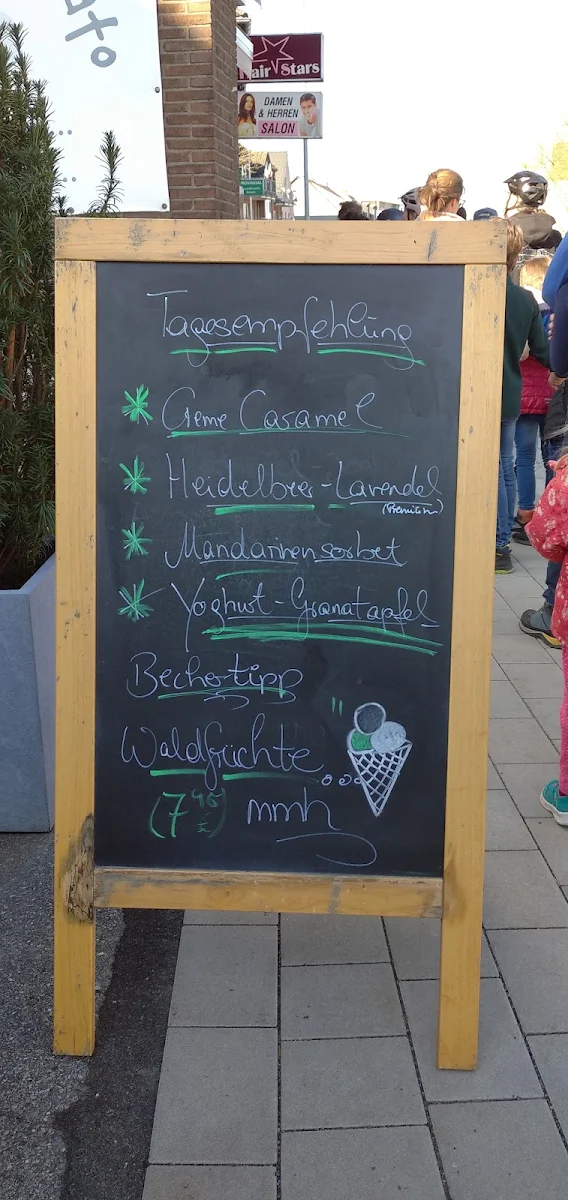 ato
Hair Stars
DAMEN
& HERREN
SALON
Tagesempfehlung
Creme Caramel
Heidelbeer-Lavendel
(Premium)
Mandarinensorbet
Yoghurt-Granatapfel
Bechertipp
Waldfrüchte...
(7,95 €) mmh